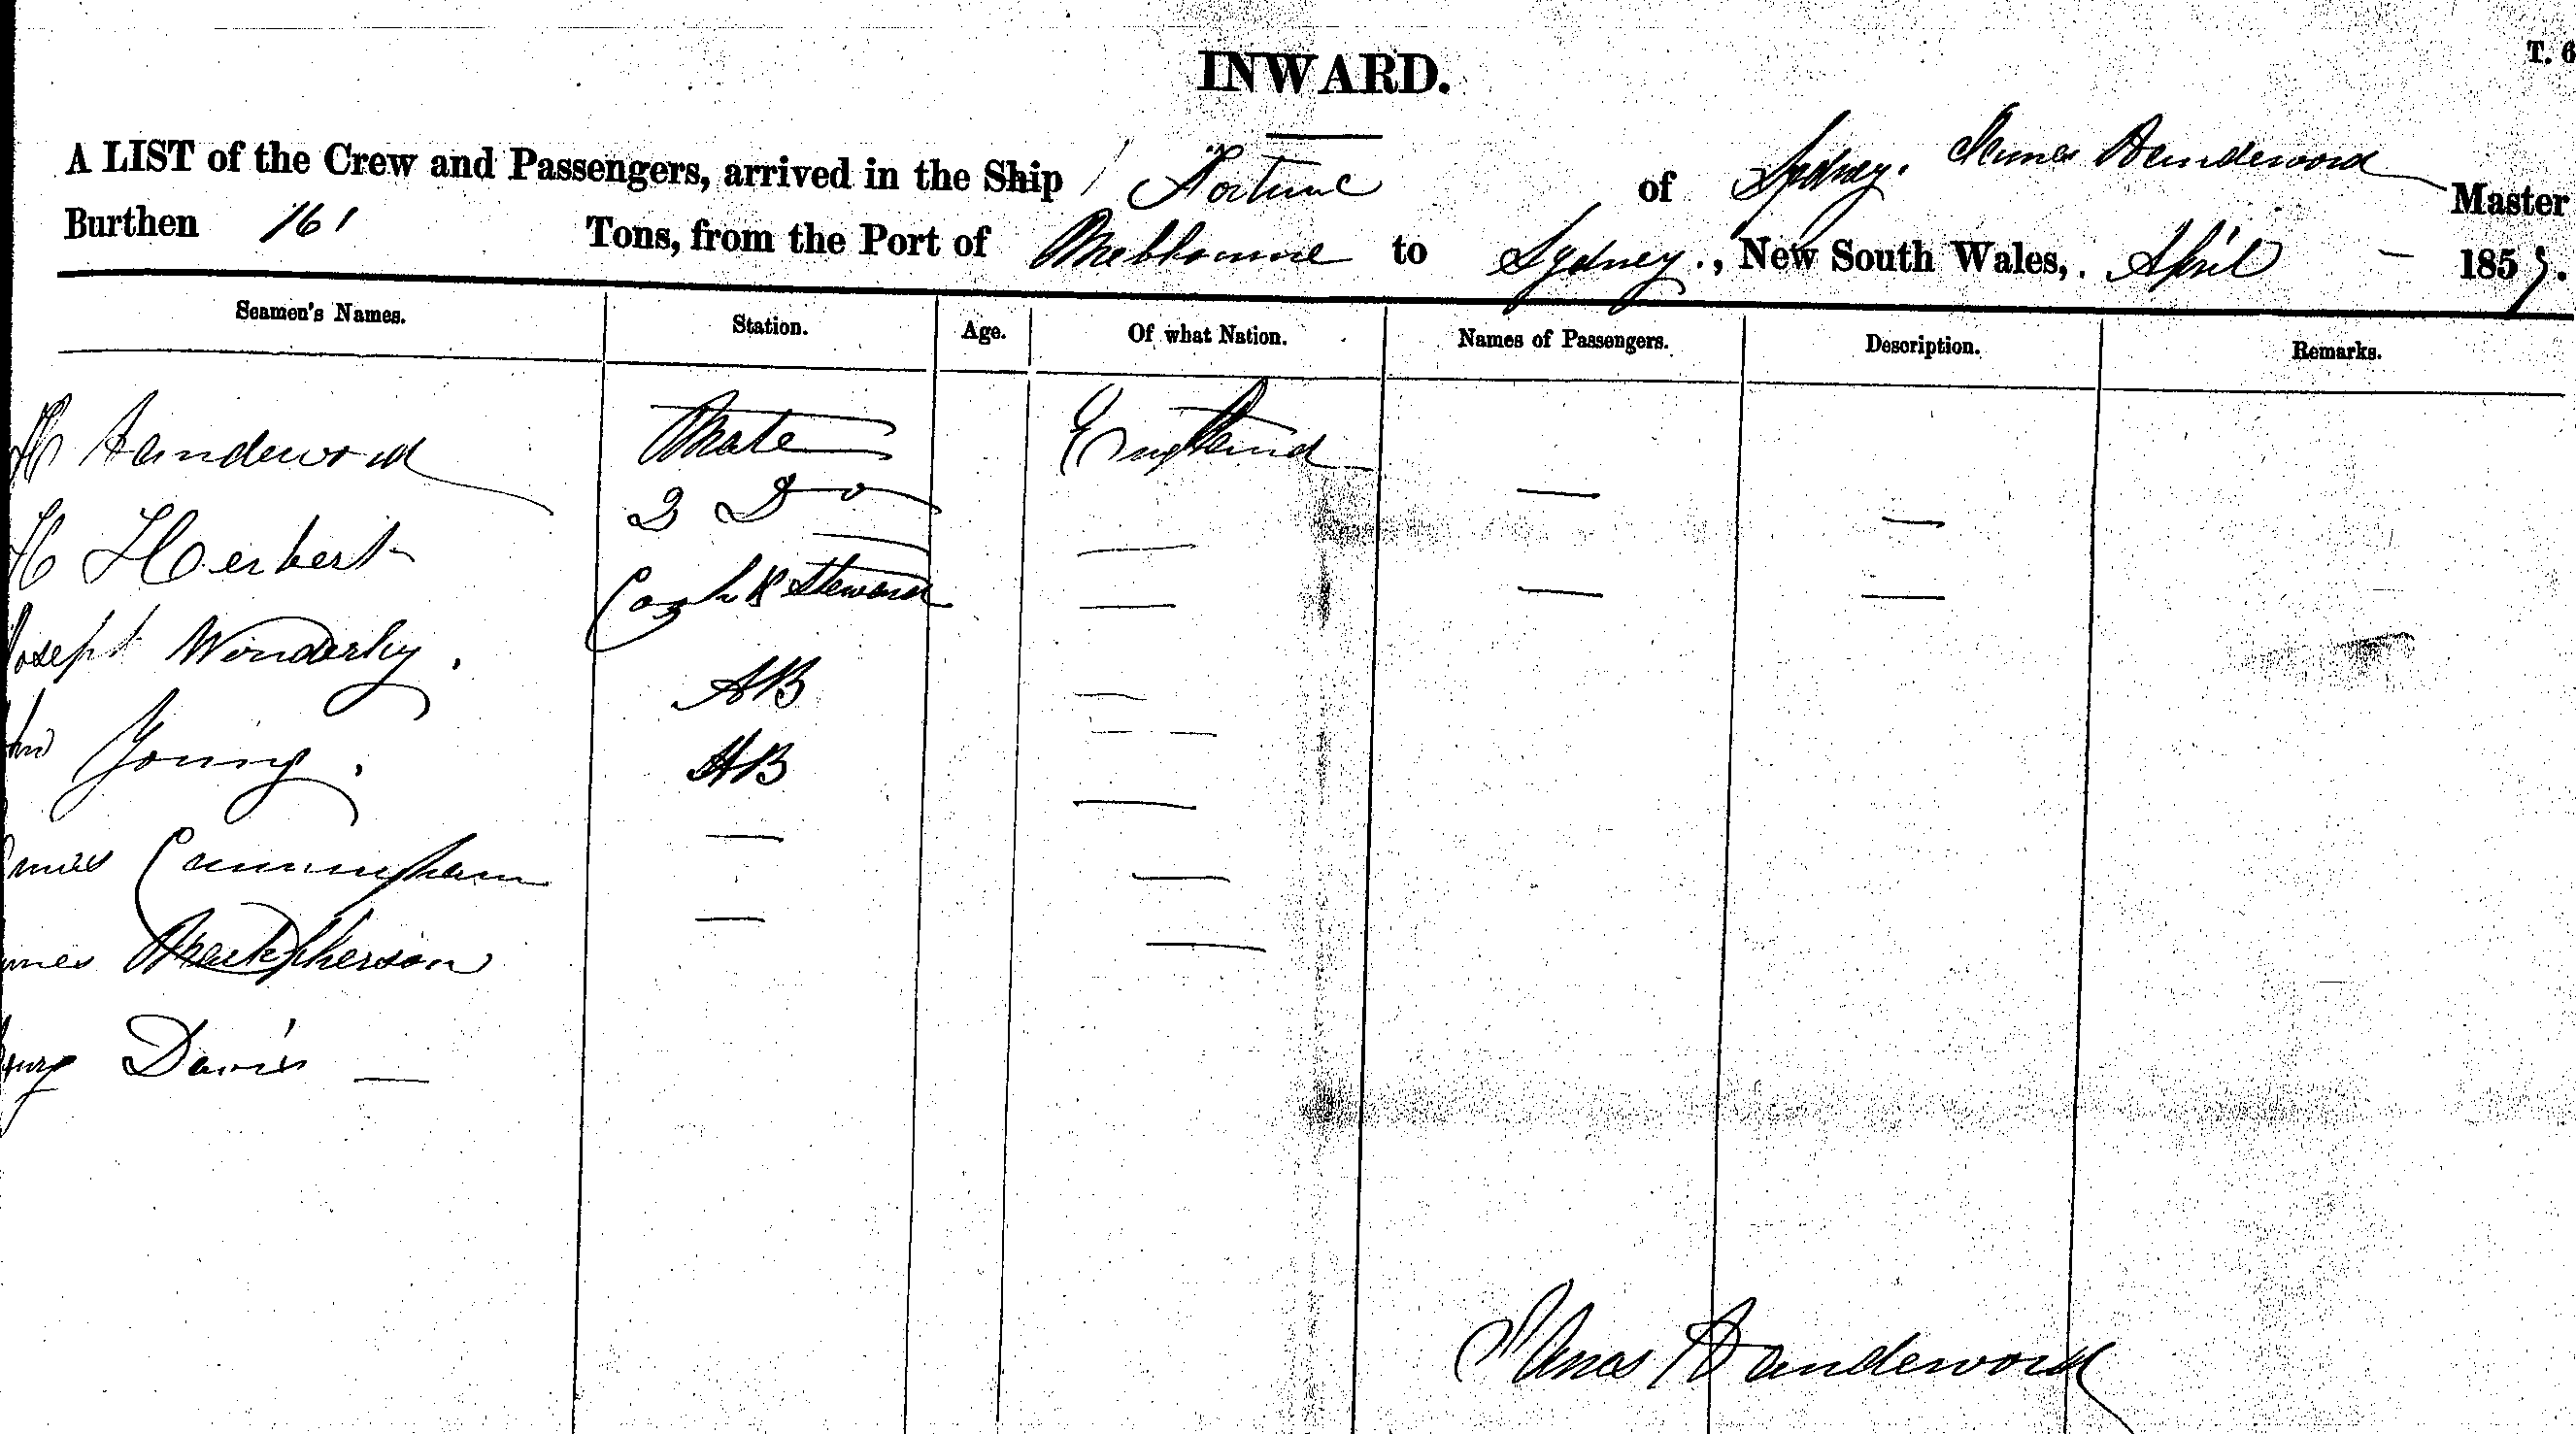 INWARD.
T. 6
A LIST of the Crew and Passengers, arrived in the Ship Fortune of Sydney. James Handeword Master
Burthen 161 Tons, from the Port of Melbourne to Sydney., New South Wales, April 1857.
Seamen's Names. Station. Age. Of what Nation. Names of Passengers. Description. Remarks.
H Handeword Mate England
H Herbert 2 Do
Joseph Wonderby. Cook & Steward
Young. AB
Cunningham AB
MackPherson
Davis
James Handeword